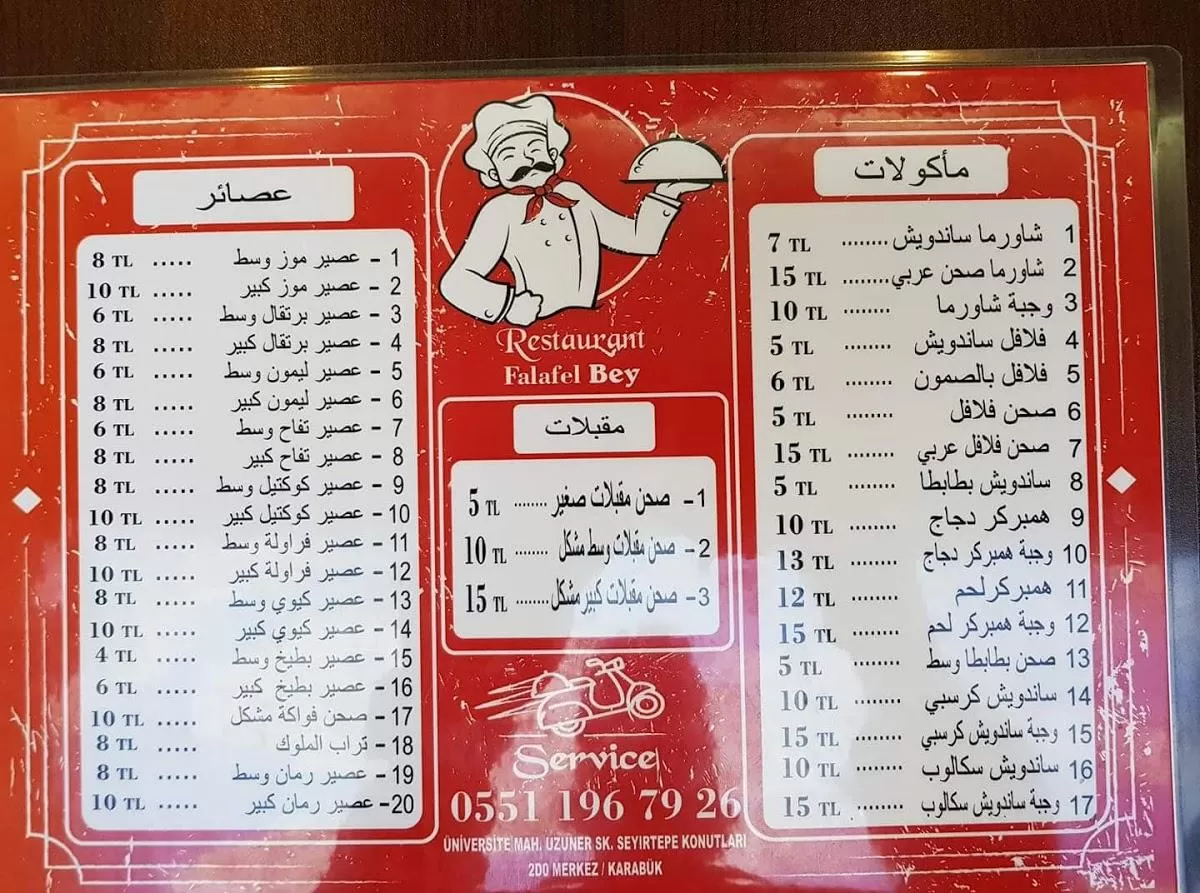 مأكولات
1 شاورما ساندويش ........ 7 TL
2 شاورما صحن عربي ........ 15 TL
3 وجبة شاورما ........ 10 TL
4 فلافل ساندويش ........ 5 TL
5 فلافل بالصمون ........ 6 TL
6 صحن فلافل ........ 5 TL
7 صحن فلافل عربي ........ 15 TL
8 ساندويش بطاطا ........ 5 TL
9 همبركر دجاج ........ 10 TL
10 وجبة همبركر دجاج ........ 13 TL
11 همبركر لحم ........ 12 TL
12 وجبة همبركر لحم ........ 15 TL
13 صحن بطاطا وسط ........ 5 TL
14 ساندويش كرسبي ........ 10 TL
15 وجبة ساندويش كرسبي ........ 15 TL
16 ساندويش سكالوب ........ 10 TL
17 وجبة ساندويش سكالوب ........ 15 TL
Restaurant
Falafel Bey
مقبلات
1- صحن مقبلات صغير ........ 5 TL
2- صحن مقبلات وسط مشكل ........ 10 TL
3- صحن مقبلات كبير مشكل ........ 15 TL
Service
0551 196 79 26
ÜNİVERSİTE MAH. UZUNER SK. SEYIRTEPE KONUTLARI
2DO MERKEZ / KARABÜK
عصائر
1 - عصير موز وسط ..... 8 TL
2 - عصير موز كبير ..... 10 TL
3 - عصير برتقال وسط ..... 6 TL
4 - عصير برتقال كبير ..... 8 TL
5 - عصير ليمون وسط ..... 6 TL
6 - عصير ليمون كبير ..... 8 TL
7 - عصير تفاح وسط ..... 6 TL
8 - عصير تفاح كبير ..... 8 TL
9 - عصير كوكتيل وسط ..... 8 TL
10 - عصير كوكتيل كبير ..... 10 TL
11 - عصير فراولة وسط ..... 8 TL
12 - عصير فراولة كبير ..... 10 TL
13 - عصير كيوي وسط ..... 8 TL
14 - عصير كيوي كبير ..... 10 TL
15 - عصير بطيخ وسط ..... 4 TL
16 - عصير بطيخ كبير ..... 6 TL
17 - صحن فواكة مشكل ..... 10 TL
18 - تراب الملوك ..... 8 TL
19 - عصير رمان وسط ..... 8 TL
20 - عصير رمان كبير ..... 10 TL